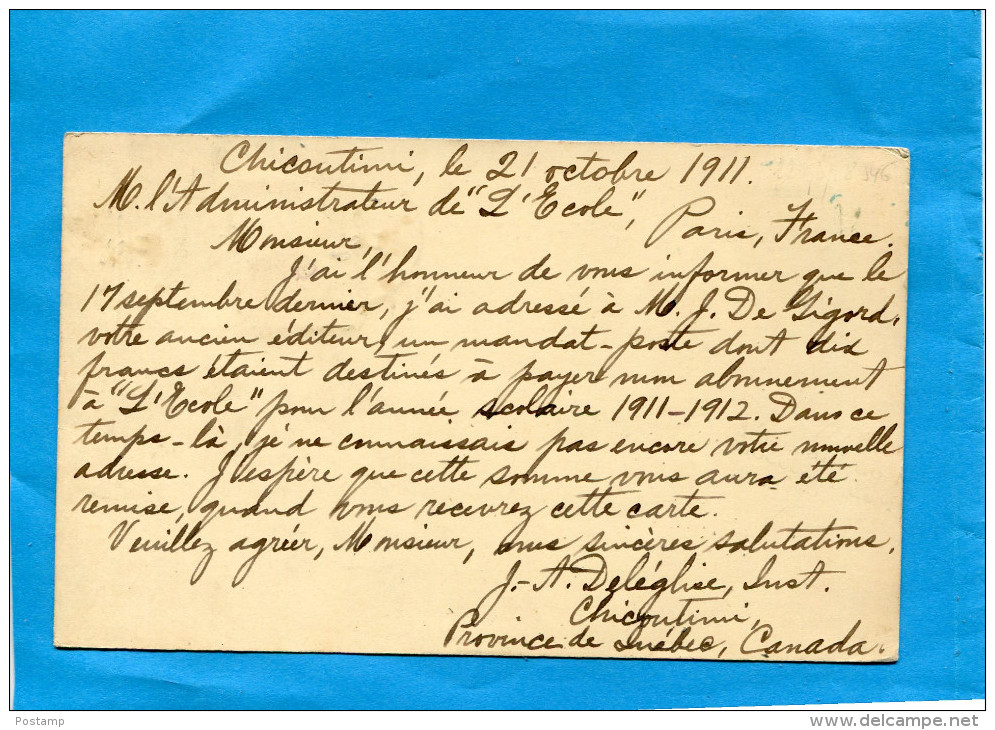 Chicoutimi, le 21 octobre 1911.
M. l'Administrateur de "L'Ecole",
Paris, France.
Monsieur,
J'ai l'honneur de vous informer que le
17 septembre dernier, j'ai adressé à M. J. De Gigord,
votre ancien éditeur, un mandat-poste dont dix
francs étaient destinés à payer mon abonnement
à "L'Ecole" pour l'année scolaire 1911-1912. Dans ce
temps-là, je ne connaissais pas encore votre nouvelle
adresse. J'espère que cette somme vous aura été
remise, quand vous recevrez cette carte.
Veuillez agréer, Monsieur, mes sincères salutations.
J.-A. Deléglise, Inst.
Chicoutimi,
Province de Québec, Canada.
Postamp
delcampe.net